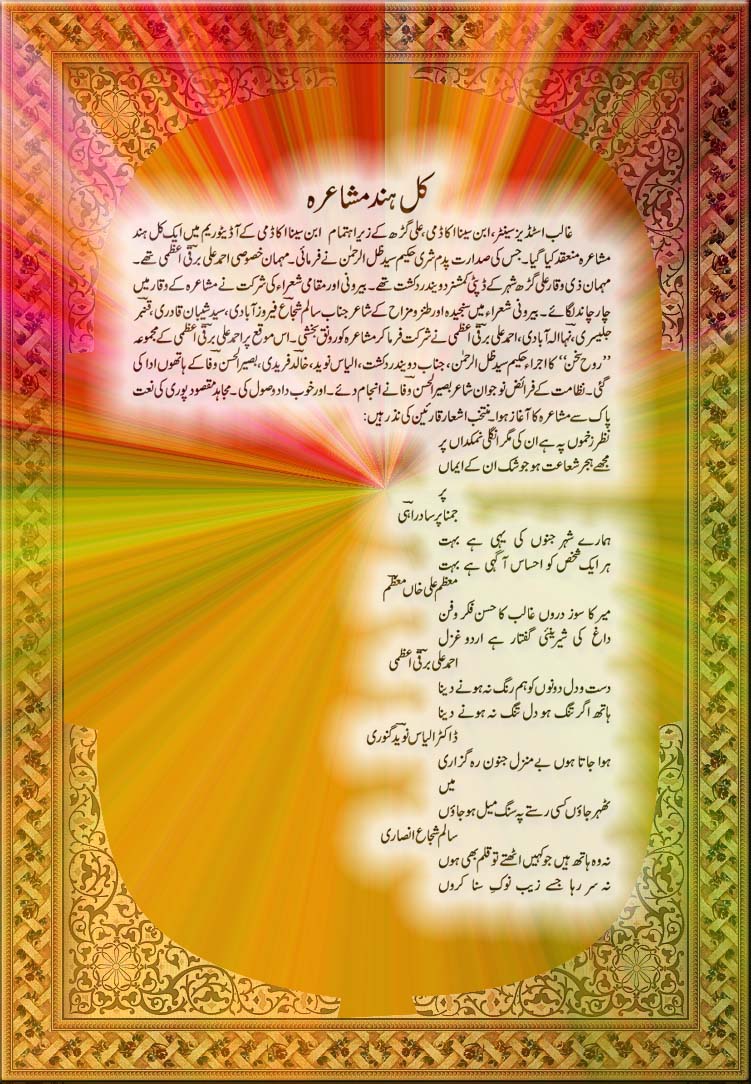 کل ہند مشاعرہ
غالب اسٹڈیز سینٹر، ابن سینا اکاڈمی، علی گڑھ کے زیر اہتمام ابن سینا اکاڈمی کے آڈیٹوریم میں ایک کل ہند
مشاعرہ منعقد کیا گیا۔ جس کی صدارت پدم شری حکیم سید ظل الرحمٰن نے فرمائی۔ مہمان خصوصی احمد علی برقی اعظمی تھے۔
مہمان ذی وقار علی گڑھ شہر کے ڈپٹی کمشنر دویندر دکشت تھے۔ بیرونی اور مقامی شعراء کی شرکت نے مشاعرہ کے وقار میں
چار چاند لگائے۔ بیرونی شعراء میں سنجیدہ اور طنز و مزاح کے شاعر جناب سالم شجاع فیروزآبادی، سید شیبان قادری، قیصر
جلیسری، نہا الہ آبادی، احمد علی برقی اعظمی نے شرکت فرما کر مشاعرہ کو رونق بخشی۔ اس موقع پر احمد علی برقی اعظمی کے مجموعہ
’’روح سخن‘‘ کا اجراء حکیم سید ظل الرحمٰن، جناب دویندر دکشت، الیاس نوید، خالد فریدی، بصیر الحسن وفا کے ہاتھوں ادا کی
گئی۔ نظامت کے فرائض نوجوان شاعر بصیر الحسن وفا نے انجام دئے۔ اور خوب داد وصول کی۔ مجاہد مقصود پوری کی نعت
پاک سے مشاعرہ کا آغاز ہوا۔ منتخب اشعار قارئین کی نذر ہیں:
نظر زخموں پہ ہے ان کی مگر انگلی نمکداں پر
مجھے ہجر شعاعت ہو جو شک ان کے ایماں
پر
جمنا پرساد راہی
ہمارے شہر جنوں کی یہی ہے بہت
ہر ایک شخص کو احساس آگہی ہے بہت
معظم علی خاں معظم
میر کا سوز دروں غالب کا حسن فکر و فن
داغ کی شیرینئی گفتار ہے اردو غزل
احمد علی برقی اعظمی
دست و دل دونوں کو ہم رنگ نہ ہونے دینا
ہاتھ اگر تنگ ہو دل تنگ نہ ہونے دینا
ڈاکٹر الیاس نوید گنوری
ہوا جاتا ہوں بے منزل جنون رہ گزاری
میں
ٹھہر جاؤں کسی رستے پہ سنگ میل ہو جاؤں
سالم شجاع انصاری
نہ وہ ہاتھ ہیں جو کہیں اٹھتے تو قلم بھی ہوں
نہ سر رہا جسے زیب نوکِ سنا کروں